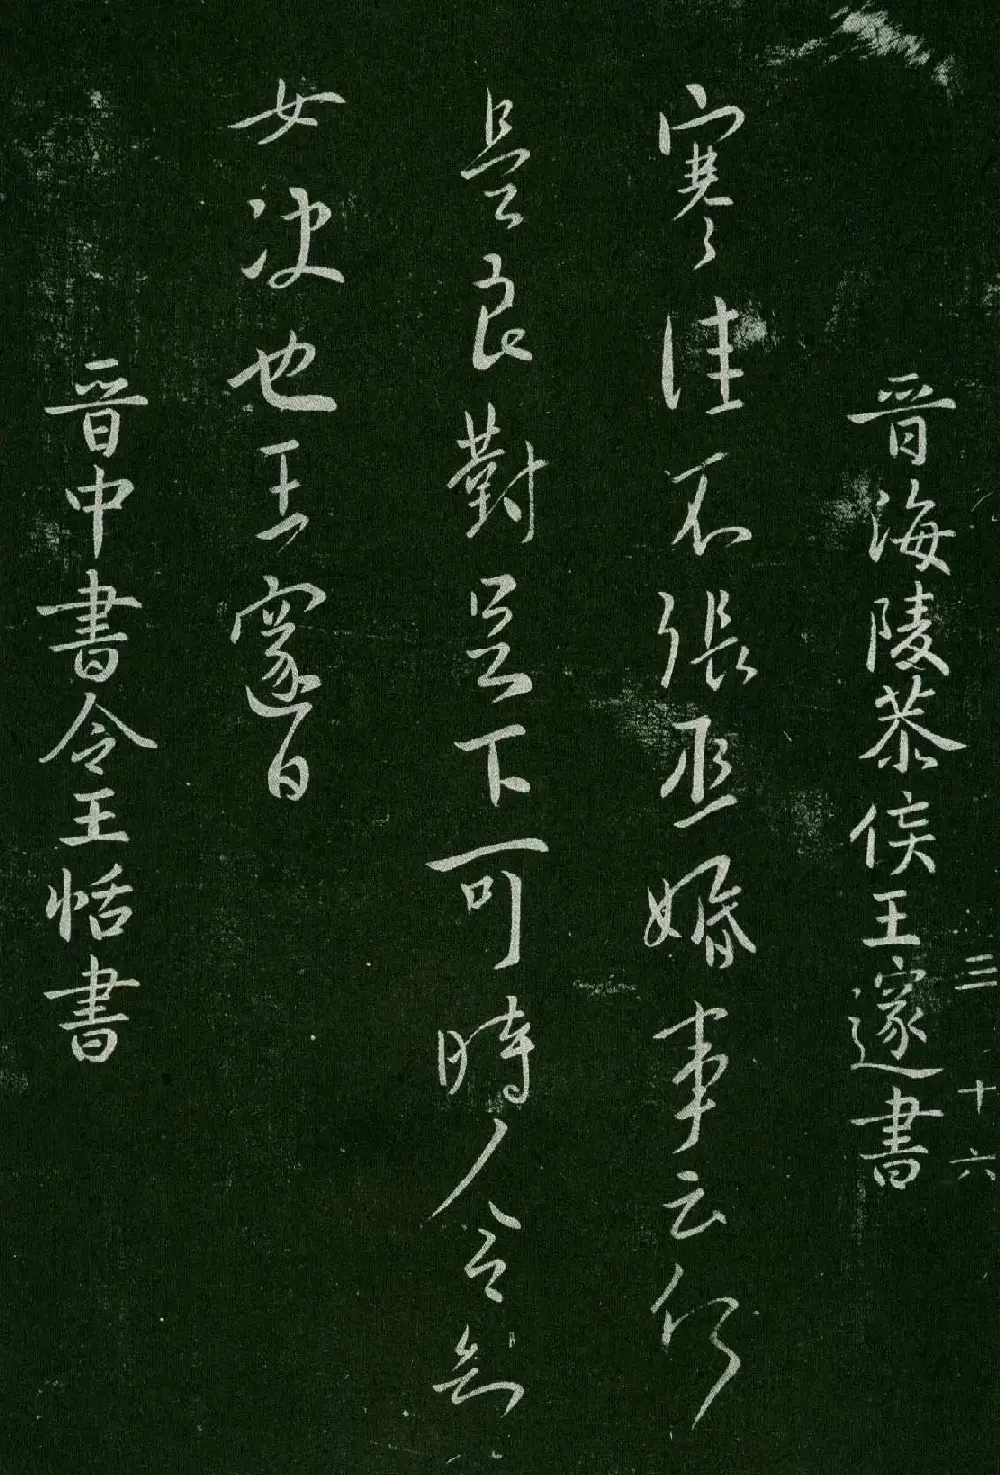 三十六
晋海陵恭侯王邃書
寒佳不張丞婚事云何
是良對足下可時令知
女决也王邃白
晋中書令王恬書